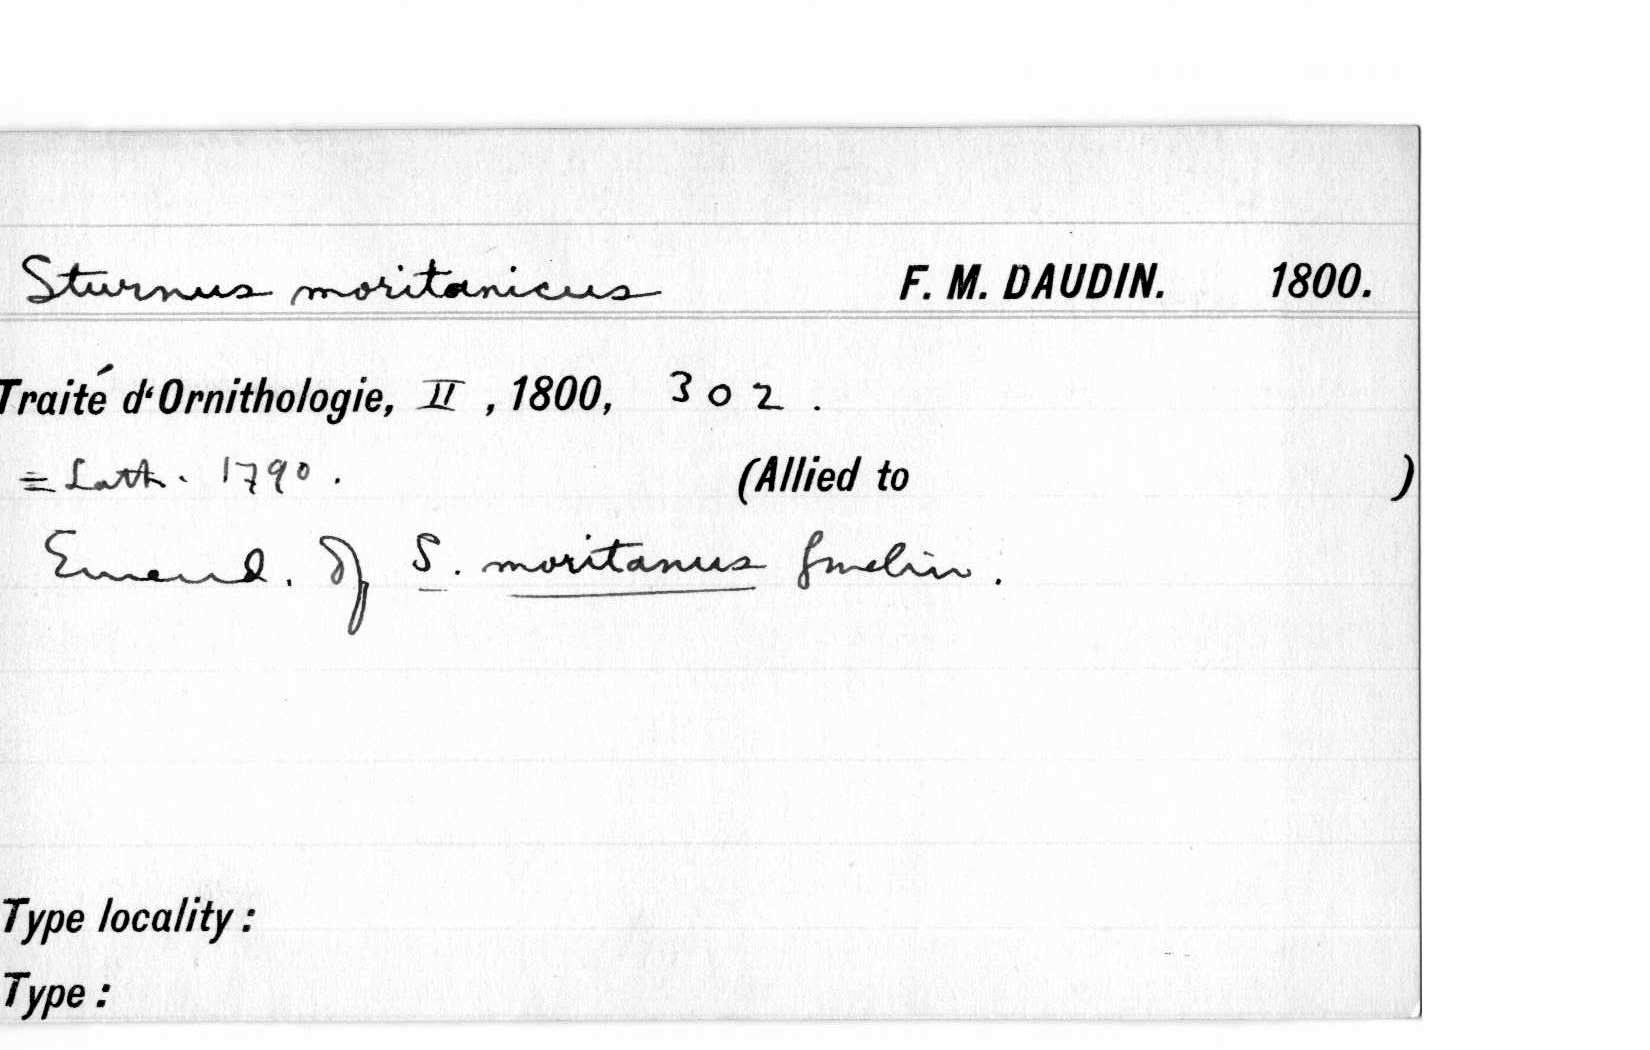 Sturnus moritanicus F. M. DAUDIN. 1800.
Traité d'Ornithologie, II, 1800, 302.
= Lath. 1790. (Allied to )
Emend. of S. moritanus Gmelin.
Type locality:
Type: